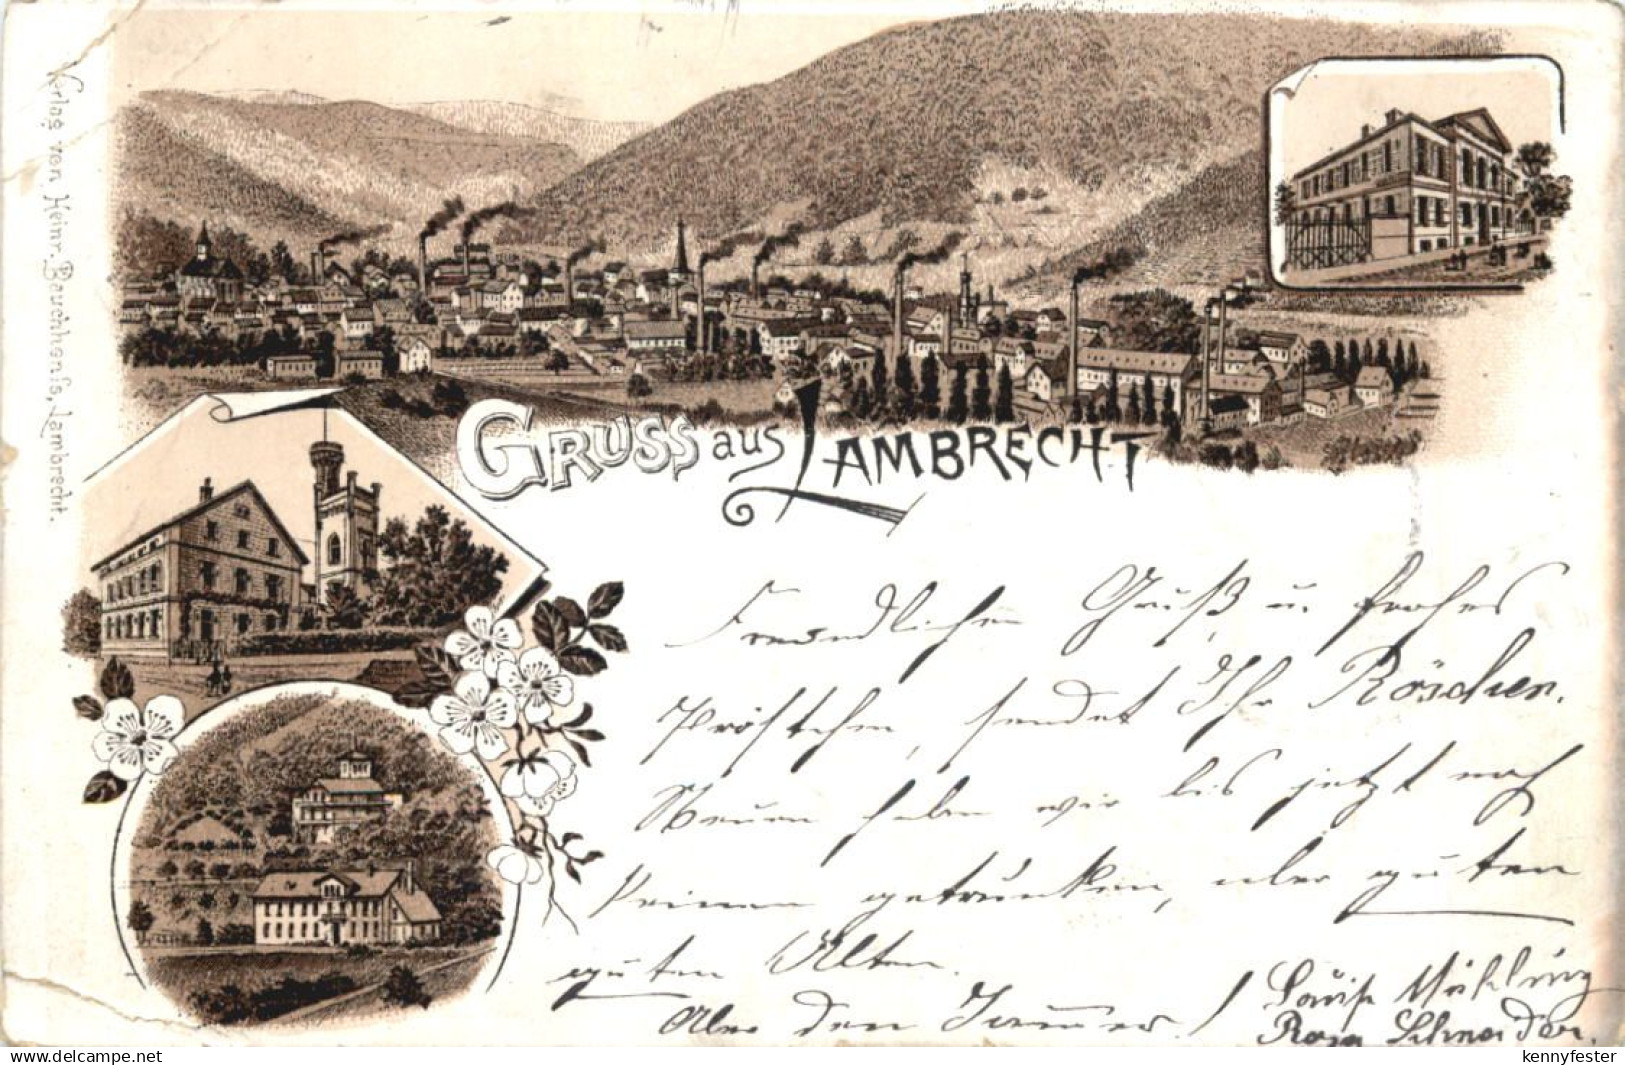 Verlag von Heinr. Bauchhenss, Lambrecht.
GRUSS aus LAMBRECHT
Freundlichen Gruß u. frohes
Pröstchen, sendet Ihr Röschen.
Neuen haben wir bis jetzt noch
keinen getrunken, aber guten
guten Alten.
Aber den Jammer!
Louise Mühling
Rosa Schneider.
© delcampe.net
kennyfester